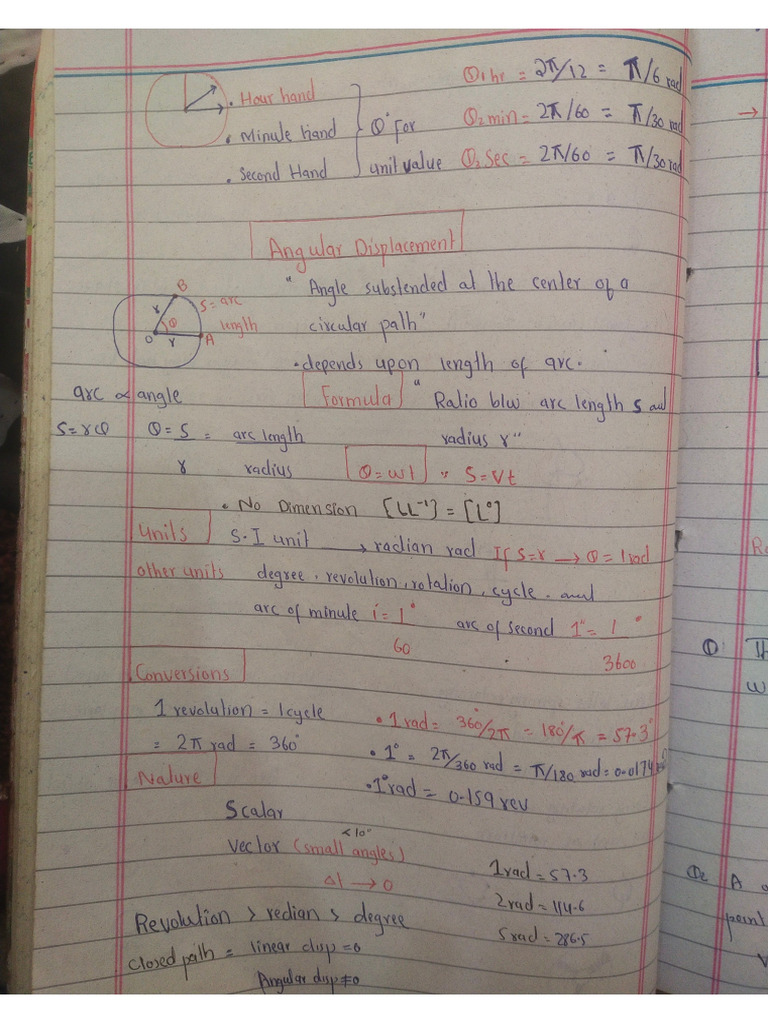 • Hour hand
• Minute hand
• Second Hand
θ° for
unit value
θ1 hr = 2π/12 = π/6 rad
θ2 min = 2π/60 = π/30 rad
θ3 sec = 2π/60 = π/30 rad
Angular Displacement
" Angle substended at the center of a
circular path"
• depends upon length of arc.
B
S = arc
length
r
θ
O
r
A
arc ∝ angle
S = rθ
Formula
" Ratio b/w arc length s and
radius r"
θ = S/r = arc length/radius
θ = wt ∵ S = Vt
• No Dimension [LL⁻¹] = [L°]
Units
S.I unit → radian rad If S=r → θ = 1 rad
other units degree, revolution, rotation, cycle. and
arc of minute 1' = 1°/60 arc of second 1" = 1°/3600
Conversions
1 revolution = 1 cycle
= 2π rad = 360°
• 1 rad = 360°/2π = 180°/π = 57.3°
• 1° = 2π/360 rad = π/180 rad = 0.0174
• 1 rad = 0.159 rev
Nature
Scalar
<10°
vector (small angles)
Δt → 0
1 rad = 57.3
2 rad = 114.6
5 rad = 286.5
Revolution > redian > degree
Closed path = linear disp = 0
Angular disp ≠ 0
→
Q:
W
Q2 A
point